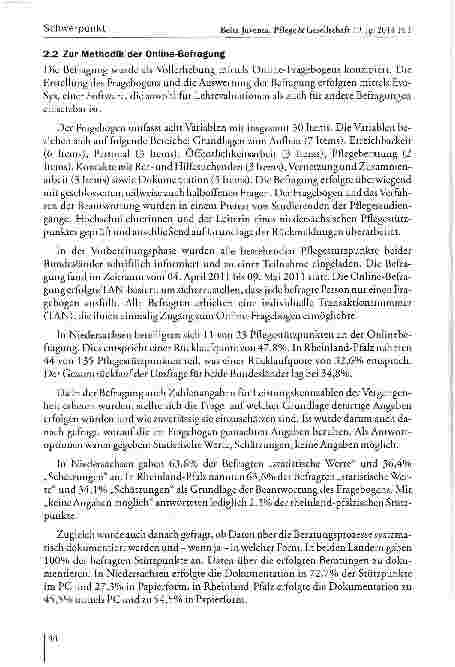 Schwerpunkt Beltz Juventa, Pflege & Gesellschaft 19. Jg. 2014 H.1
2.2 Zur Methodik der Online-Befragung
Die Befragung wurde als Vollerhebung mittels Online-Fragebogens konzipiert. Die
Erstellung des Fragebogens und die Auswertung der Befragung erfolgten mittels Eva-
Sys, einer Software, die sowohl für Lehrevaluationen als auch für andere Befragungen
einsetzbar ist.
Der Fragebogen umfasst acht Variablen mit insgesamt 30 Items. Die Variablen be-
ziehen sich auf folgende Bereiche: Grundlagen zum Aufbau (7 Items), Erreichbarkeit
(6 Items), Personal (3 Items), Öffentlichkeitsarbeit (3 Items), Pflegeberatung (2
Items), Kontakte mit Rat- und Hilfesuchenden (3 Items), Vernetzung und Zusammen-
arbeit (3 Items) sowie Dokumentation (3 Items). Die Befragung erfolgte überwiegend
mit geschlossenen, teilweise auch halboffenen Fragen. Der Fragebogen und das Verfah-
ren der Beantwortung wurden in einem Pretest von Studierenden der Pflegestudien-
gänge, Hochschullehrerinnen und der Leiterin eines niedersächsischen Pflegestütz-
punktes geprüft und anschließend auf Grundlage der Rückmeldungen überarbeitet.
In der Vorbereitungsphase wurden alle bestehenden Pflegestützpunkte beider
Bundesländer schriftlich informiert und zu einer Teilnahme eingeladen. Die Befra-
gung fand im Zeitraum vom 04. April 2011 bis 09. Mai 2011 statt. Die Online-Befra-
gung erfolgte TAN-basiert um sicherzustellen, dass jede befragte Person nur einen Fra-
gebogen ausfüllt. Alle Befragten erhielten eine individuelle Transaktionsnummer
(TAN), die ihnen einmalig Zugang zum Online-Fragebogen ermöglichte.
In Niedersachsen beteiligten sich 11 von 23 Pflegestützpunkten an der Onlinebe-
fragung. Dies entspricht einer Rücklaufquote von 47,8%. In Rheinland-Pfalz nahmen
44 von 135 Pflegestützpunkten teil, was einer Rücklaufquote von 32,6% entsprach.
Der Gesamtrücklauf der Umfrage für beide Bundesländer lag bei 34,8%.
Da in der Befragung auch Zahlenangaben für Leistungskennzahlen der Vergangen-
heit erhoben wurden, stellte sich die Frage, auf welcher Grundlage derartige Angaben
erfolgen würden und wie zuverlässig sie einzuschätzen sind. Es wurde darum auch da-
nach gefragt, worauf die im Fragebogen gemachten Angaben beruhen. Als Antwort-
optionen waren gegeben: Statistische Werte, Schätzungen, keine Angaben möglich.
In Niedersachsen gaben 63,6% der Befragten „statistische Werte“ und 36,4%
„Schätzungen“ an. In Rheinland-Pfalz nannten 63,6% der Befragten „statistische Wer-
te“ und 34,1% „Schätzungen“ als Grundlage der Beantwortung des Fragebogens. Mit
„keine Angaben möglich“ antworteten lediglich 2,3% der rheinland-pfälzischen Stütz-
punkte.
Zugleich wurde auch danach gefragt, ob Daten über die Beratungsprozesse systema-
tisch dokumentiert werden und – wenn ja – in welcher Form. In beiden Ländern gaben
100% der befragten Stützpunkte an, Daten über die erfolgten Beratungen zu doku-
mentieren. In Niedersachsen erfolgte die Dokumentation in 72,7% der Stützpunkte
im PC und 27,3% in Papierform, in Rheinland-Pfalz erfolgte die Dokumentation zu
45,5% mittels PC und zu 54,5% in Papierform.